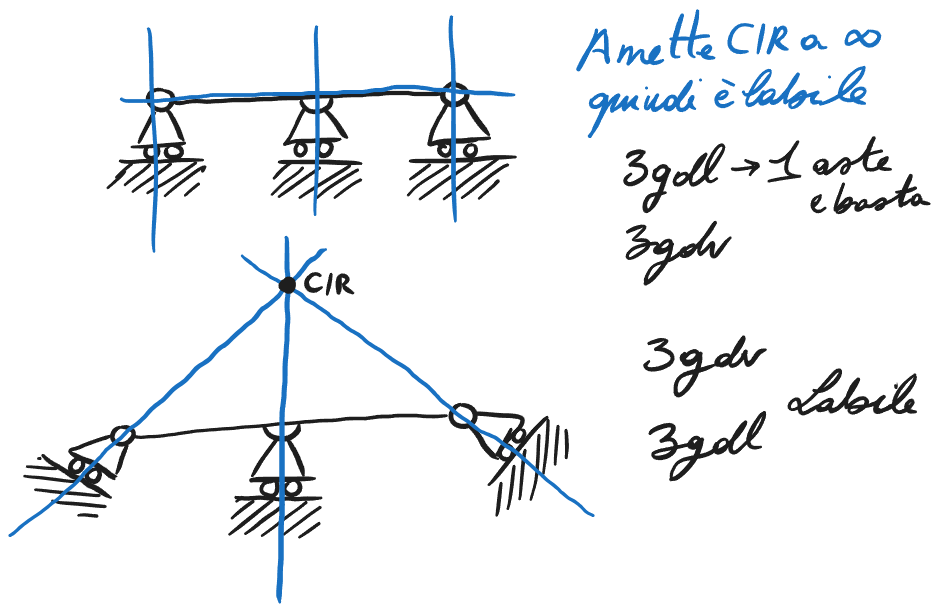 Amette CIR a ∞
quindi è labile
3gdl → 1 aste
e basta
3gdv
CIR
3gdv
Labile
3gdl